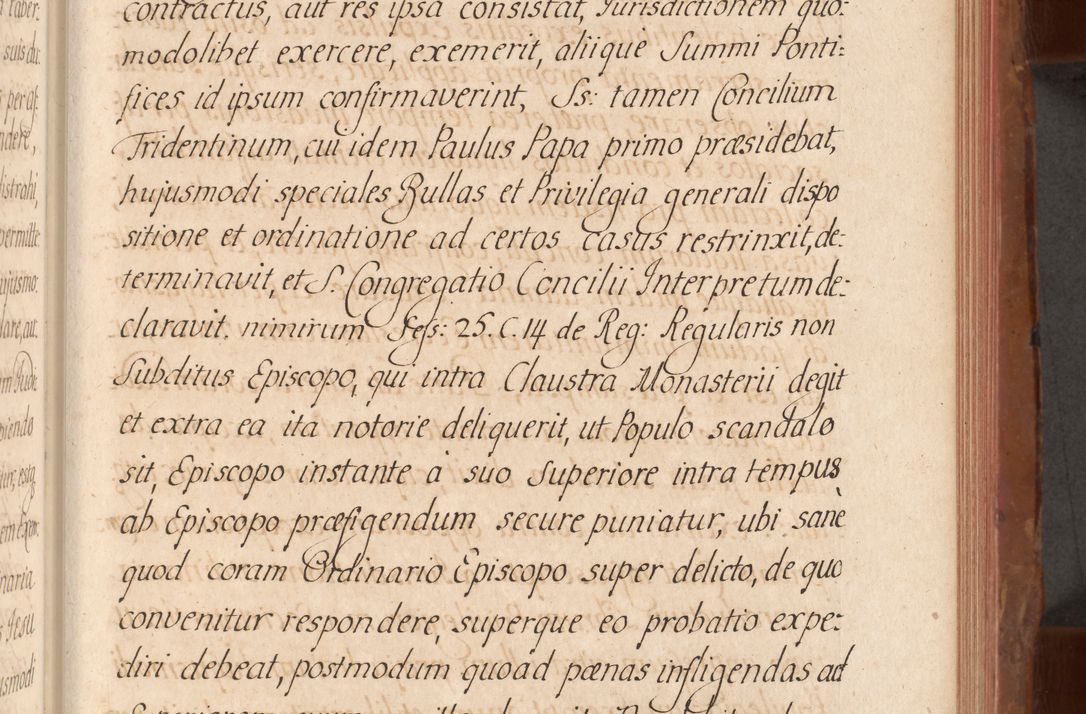 contractus, aut res ipsa consistat, Jurisdictionem quo:
modolibet exercere, exemerit, aliique Summi Ponti:
fices id ipsum confirmaverint, Ss: tamen Concilium
Tridentinum, cui idem Paulus Papa primo præsidebat,
hujusmodi speciales Bullas et Privilegia generali dispo
sitione et ordinatione ad certos casus restrinxit, de:
terminavit, et S. Congregatio Concilii Interpretum de:
claravit. nimirum Seſs: 25. C. 14 de Reg: Regularis non
Subditus Episcopo, qui intra Claustra Monasterii degit
et extra ea ita notorie deliquerit, ut Populo scandalo
sit, Episcopo instante à suo Superiore intra tempus
ab Episcopo præfigendum secure puniatur, ubi sanè
quod coram Ordinario Episcopo super delicto, de quo
convenitur respondere, superque eo probatio expe:
diri debeat, postmodum quoad pœnas infligendas ad